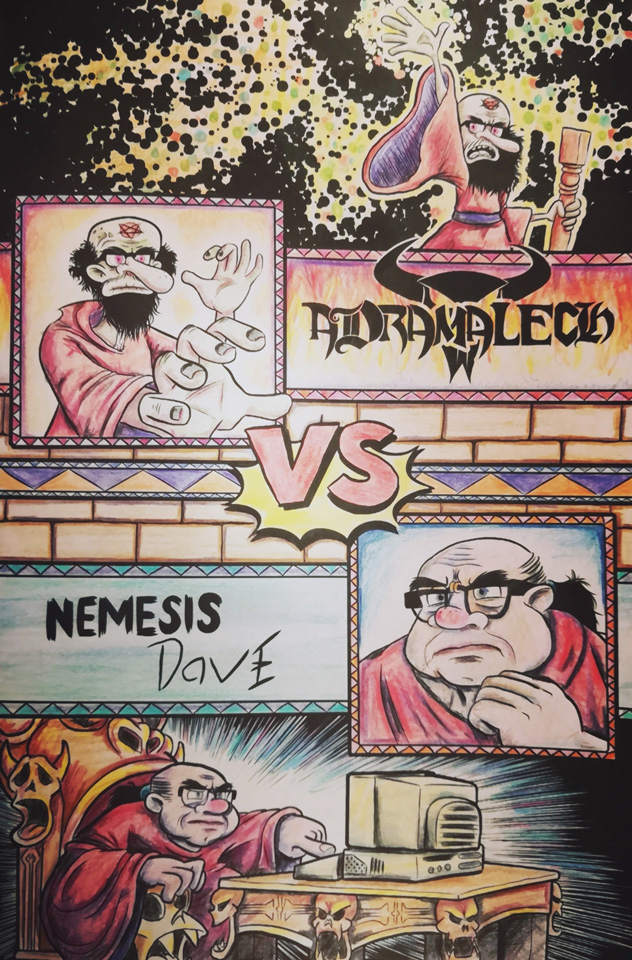 ADRAMALECH
VS
NEMESIS
DavE